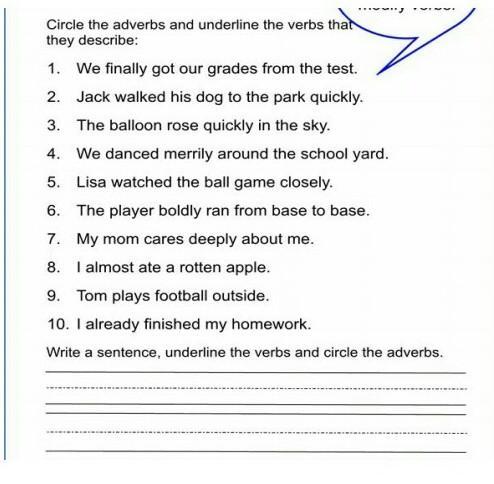 Circle the adverbs and underline the verbs that
they describe:
1. We finally got our grades from the test.
2. Jack walked his dog to the park quickly.
3. The balloon rose quickly in the sky.
4. We danced merrily around the school yard.
5. Lisa watched the ball game closely.
6. The player boldly ran from base to base.
7. My mom cares deeply about me.
8. I almost ate a rotten apple.
9. Tom plays football outside.
10. I already finished my homework.
Write a sentence, underline the verbs and circle the adverbs.